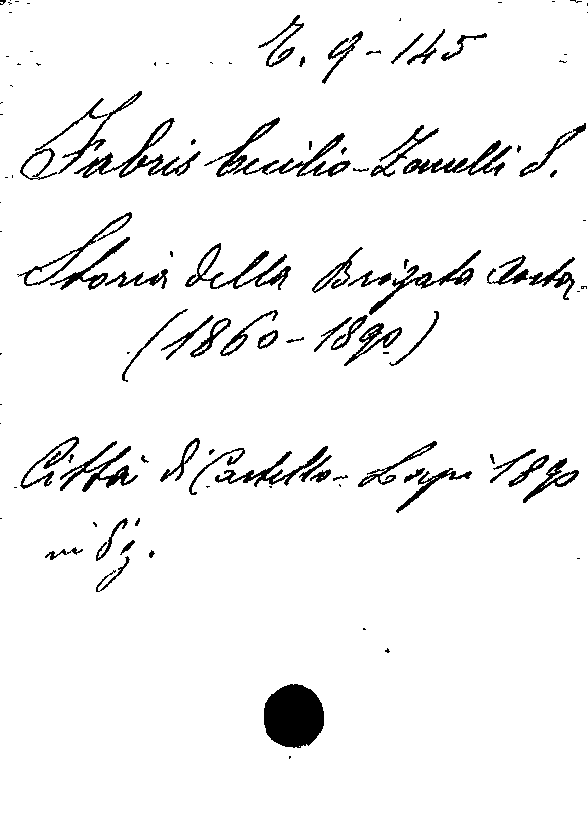 E. 9-145
Fabris Cecilio - Zanelli S.
Storia della Brigata Aosta
(1860-1890)
Città di Castello - Lapi 1890
in 8§.